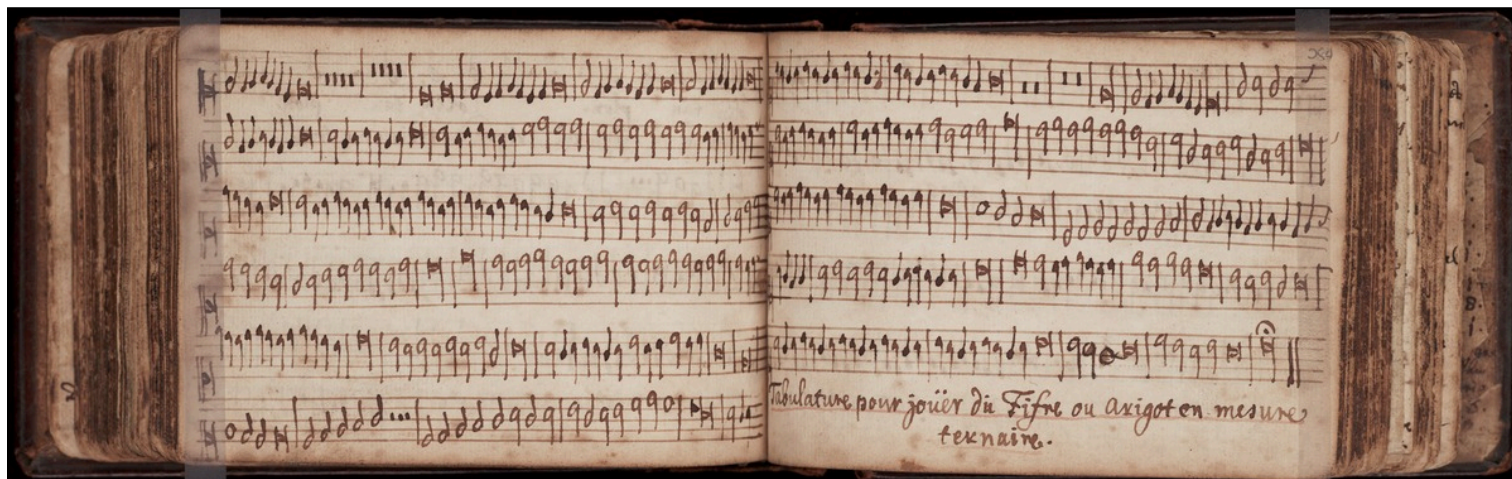 Tabulature pour joüer du Fifre ou Arigot en mesure
ternaire.